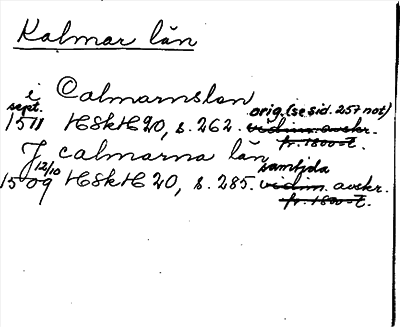 Kalmar län
i Calmarnslan
sept. orig. (se sid. 257 not)
1511 HSkH 20, s. 262. vidim. avskr.
fr. 1800-t.
J calmarna län
12/10 samtida
1509 HSkH 20, s. 285. vidim. avskr.
fr. 1800-t.